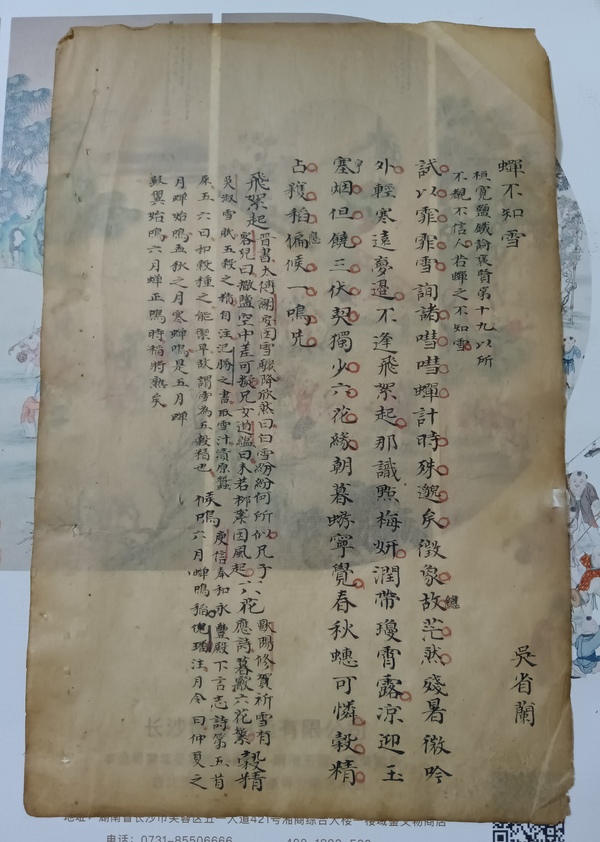 蟬不知雪
吳省蘭
桓寬鹽鐵論褒賢第十九以所
不覩不信人若蟬之不知雪
試以霏霏雪詢諸嘒嘒蟬計時殊邈矣徵象故茫然殘暑微吟
總
外輕寒遠夢邊不逢飛絮起那識照梅妍潤帶瓊霄露凉迎玉
塞烟但饒三伏契獨少六花緣朝暮蜉寧覺春秋蟪可憐穀精
占穫稻偏候一鳴先
應
飛絮起晉書太傅謝安因雪驟降欣然曰白雪紛紛何所似兄子
客兒曰撒鹽空中差可擬兄女道韞曰未若柳絮因風起
六花歐陽修賀祈雪有
應詩暮歇六花繁
穀精
吳淑雪賦五穀之精自注氾勝之書取雪汁漬原蠶
原五六日和穀種之能禦旱故謂雪為五穀精也
候鳴庾信奉和永豐殿下言志詩第五首
六月蟬鳴稻
注月令曰仲夏之
月蟬始鳴孟秋之月寒蟬鳴是五月蟬
鼓翼始鳴六月蟬正鳴時稻將熟矣
長沙
有限
地址：湖南省長沙市芙蓉區五一大道421號湘商綜合大樓一樓域鑒文物商店
电话：0731-85506666